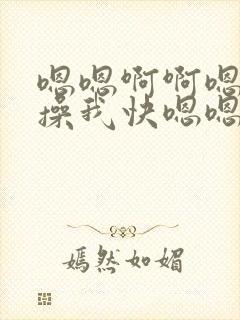 嗯嗯啊啊嗯
操我快嗯嗯
嫣然如媚